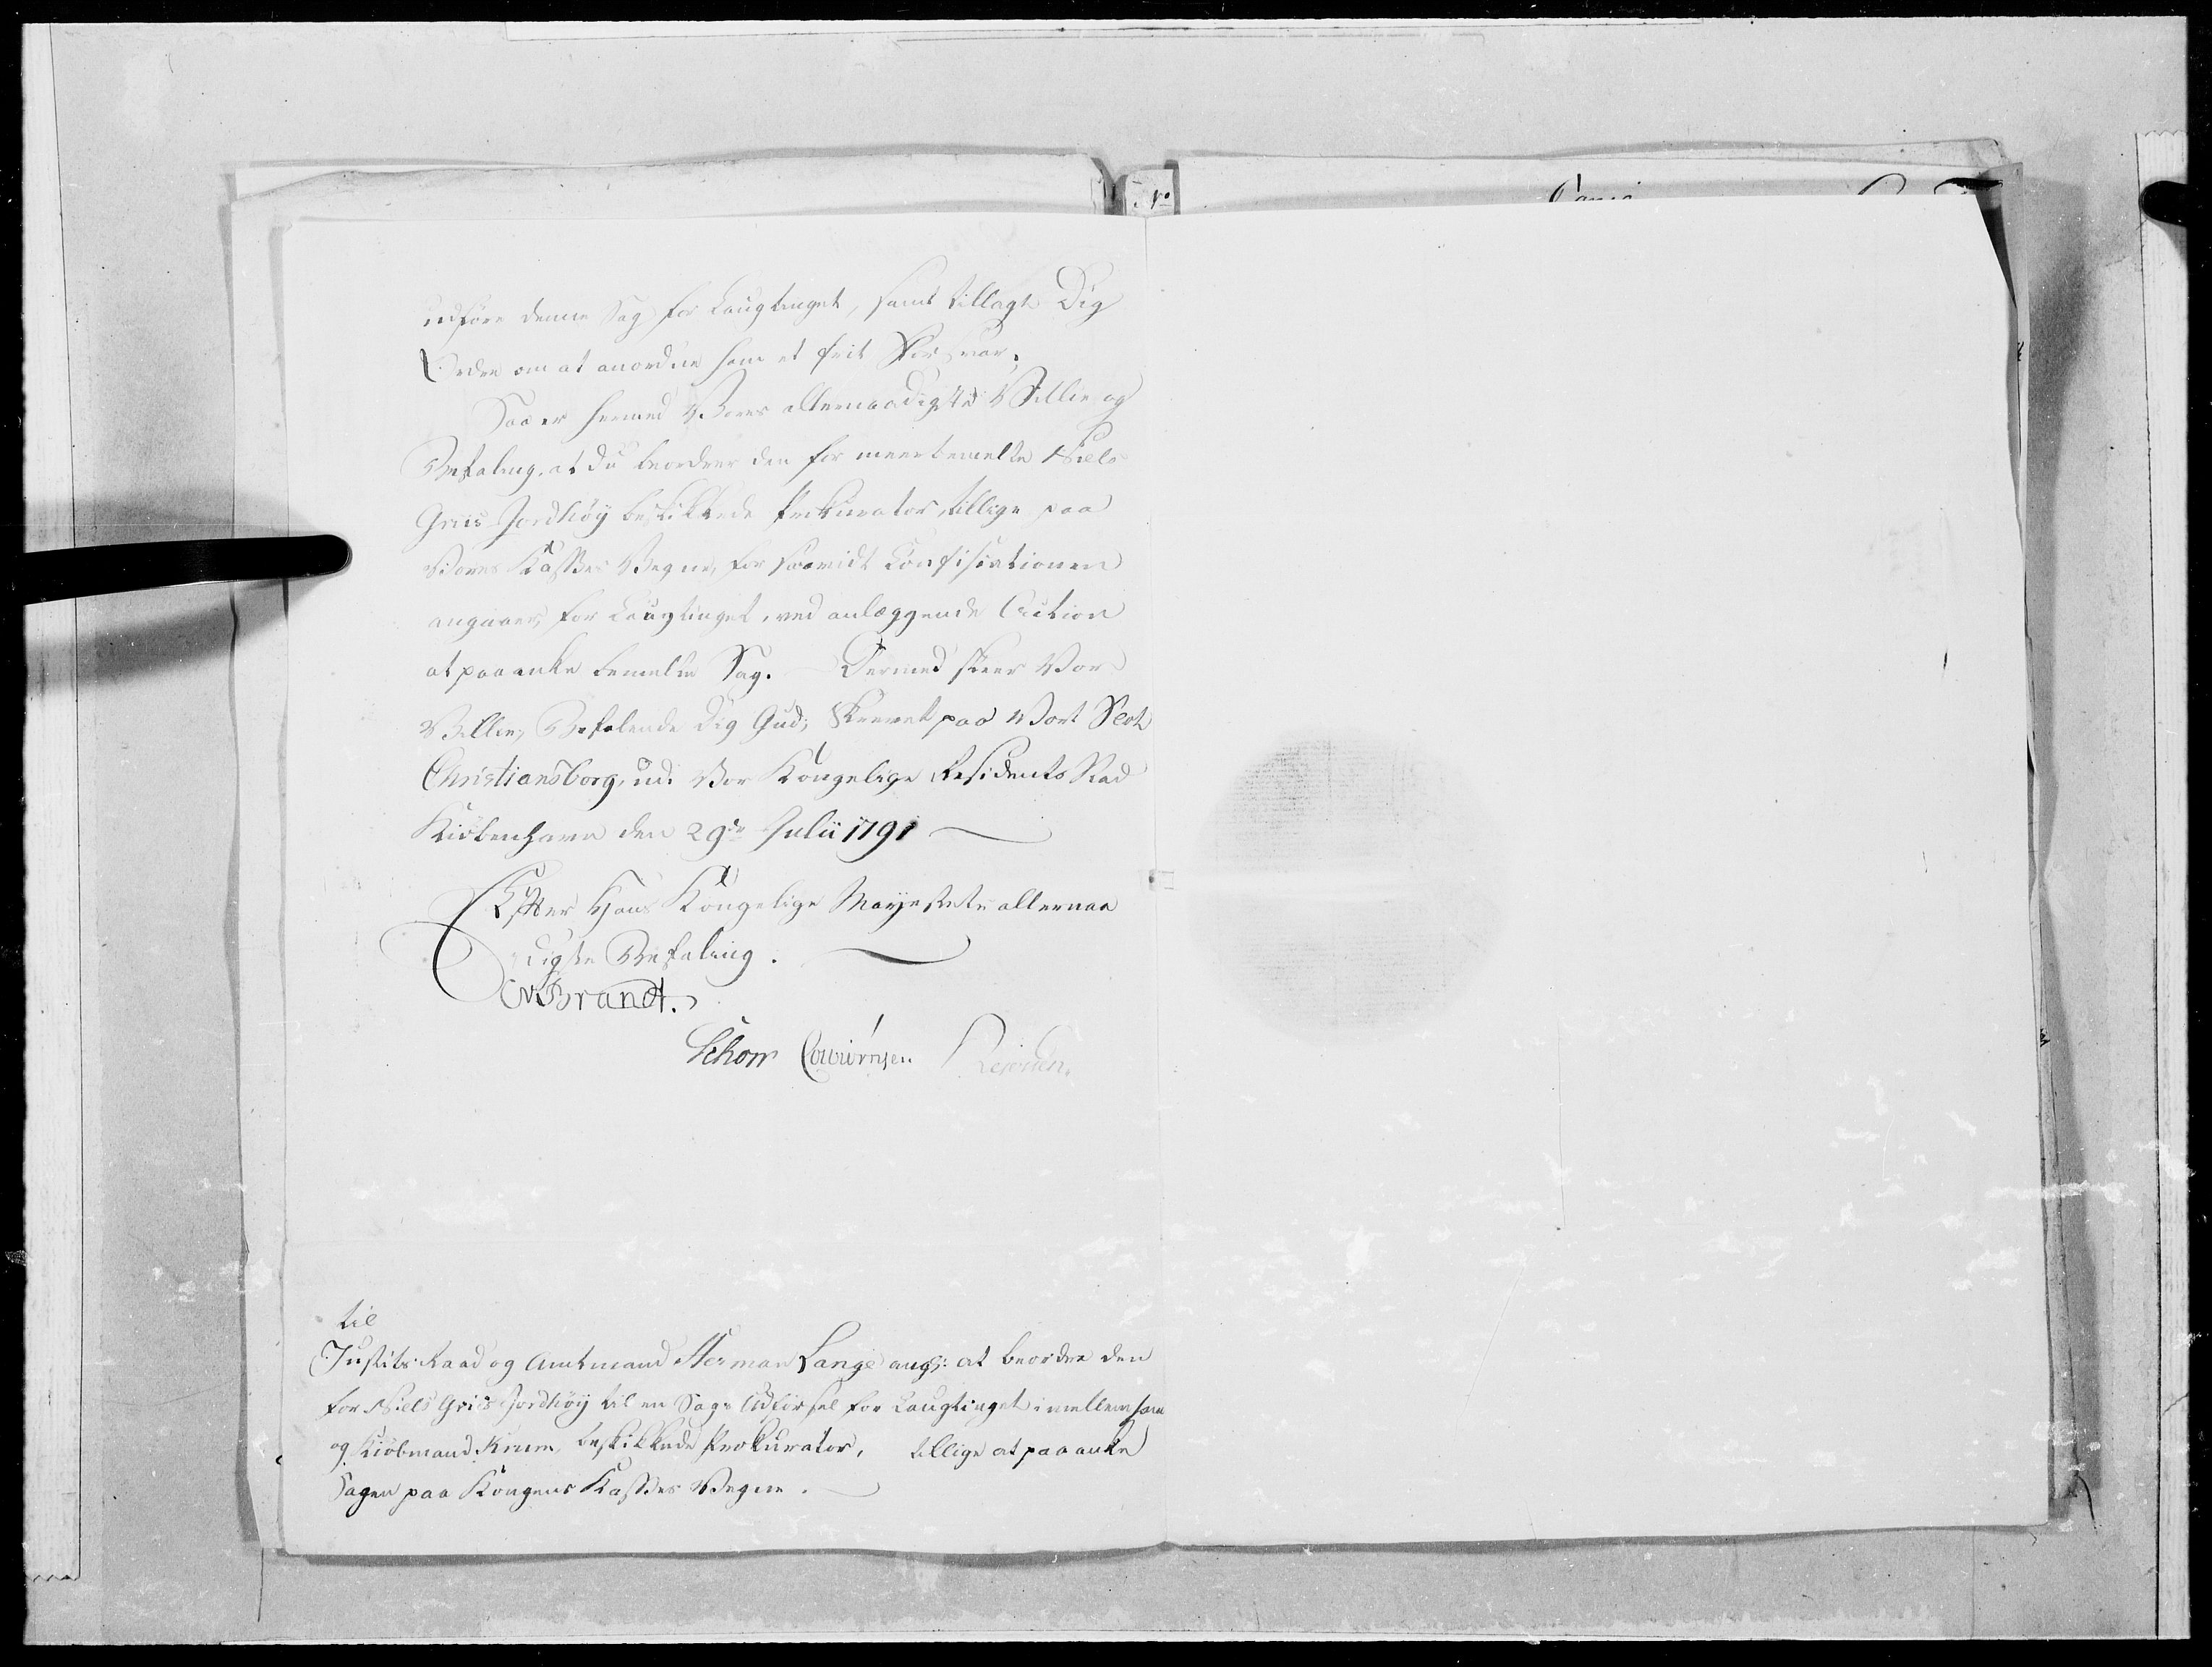 udføre denne Sag for Laugtinget, samt tillagt Dig
Ordre om at anordne ham et frit Forsvar.
Saa er hermed Vores allernaadigste Villie og
Befaling, at Du beordrer den for meerbemelte Niels
Griis Jordhøy beskikkede Prokurator, tillige paa
Vores Kasses Vegne, for saavidt Confiscationen
angaaer, for Laugtinget, ved anlæggende Action
at paaanke bemelte Sag. Dermed skeer Vor
Villie, Befalende Dig Gud; Skrevet paa Vort Slot
Christiansborg, udi Vor Kongelige Residents Stad
Kiöbenhavn den 29de Julii 1791
Efter Hans Kongelige Mayestets allernaa
digste Befaling.
Brandt.
Schow Colbiørnsen
til
Justits-Raad og Amtmand Herman Lange angs: at beordre den
for Niels Griis Jordhöy til en Sags Udförsel for Laugtinget imellem ham
og Kiöbmand Krum, beskikkede Prokurator, tillige at paaanke
Sagen paa Kongens Kasses Vegne.